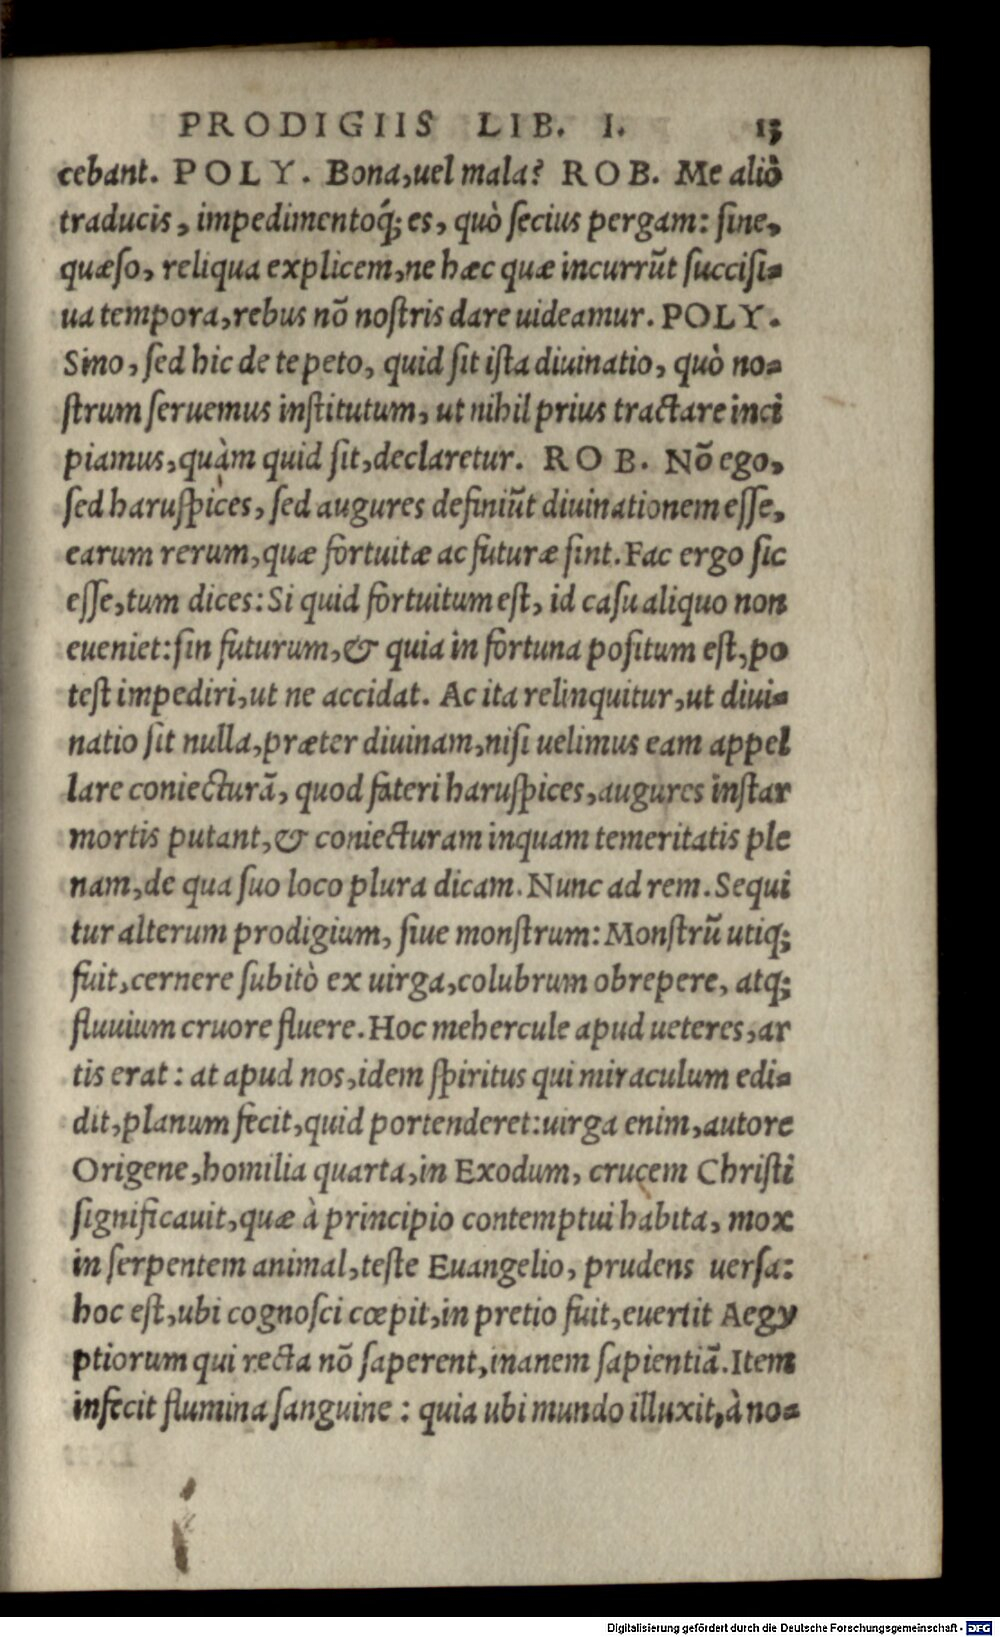 PRODIGIIS LIB. I. 13
cebant. POLY. Bona, uel mala? ROB. Me aliò
traducis, impedimentoq́; es, quò ſecius pergam: ſine,
quæſo, reliqua explicem, ne hæc quæ incurrũt ſucciſi=
ua tempora, rebus nõ noſtris dare uideamur. POLY.
Sino, ſed hic de te peto, quid ſit iſta diuinatio, quò no=
ſtrum ſeruemus inſtitutum, ut nihil prius tractare inci
piamus, quàm quid ſit, declaretur. ROB. Nõ ego,
ſed haruſpices, ſed augures definiũt diuinationem eſſe,
earum rerum, quæ fortuitæ ac futuræ ſint. Fac ergo ſic
eſſe, tum dices: Si quid fortuitum eſt, id caſu aliquo non
eueniet: ſin futurum, & quia in fortuna poſitum eſt, po
teſt impediri, ut ne accidat. Ac ita relinquitur, ut diui=
natio ſit nulla, præter diuinam, niſi uelimus eam appel
lare coniecturã, quod fateri haruſpices, augures inſtar
mortis putant, & coniecturam inquam temeritatis ple
nam, de qua ſuo loco plura dicam. Nunc ad rem. Sequi
tur alterum prodigium, ſiue monſtrum: Monſtrũ utiq;
fuit, cernere ſubitò ex uirga, colubrum obrepere, atq;
fluuium cruore fluere. Hoc mehercule apud ueteres, ar
tis erat: at apud nos, idem ſpiritus qui miraculum edi=
dit, planum fecit, quid portenderet: uirga enim, autore
Origene, homilia quarta, in Exodum, crucem Chriſti
ſignificauit, quæ à principio contemptui habita, mox
in ſerpentem animal, teſte Euangelio, prudens uerſa:
hoc eſt, ubi cognoſci cœpit, in pretio fuit, euertit Aegy
ptiorum qui recta nõ ſaperent, inanem ſapientiã. Item
infecit flumina ſanguine: quia ubi mundo illuxit, à no=
Digitalisierung gefördert durch die Deutsche Forschungsgemeinschaft - DFG